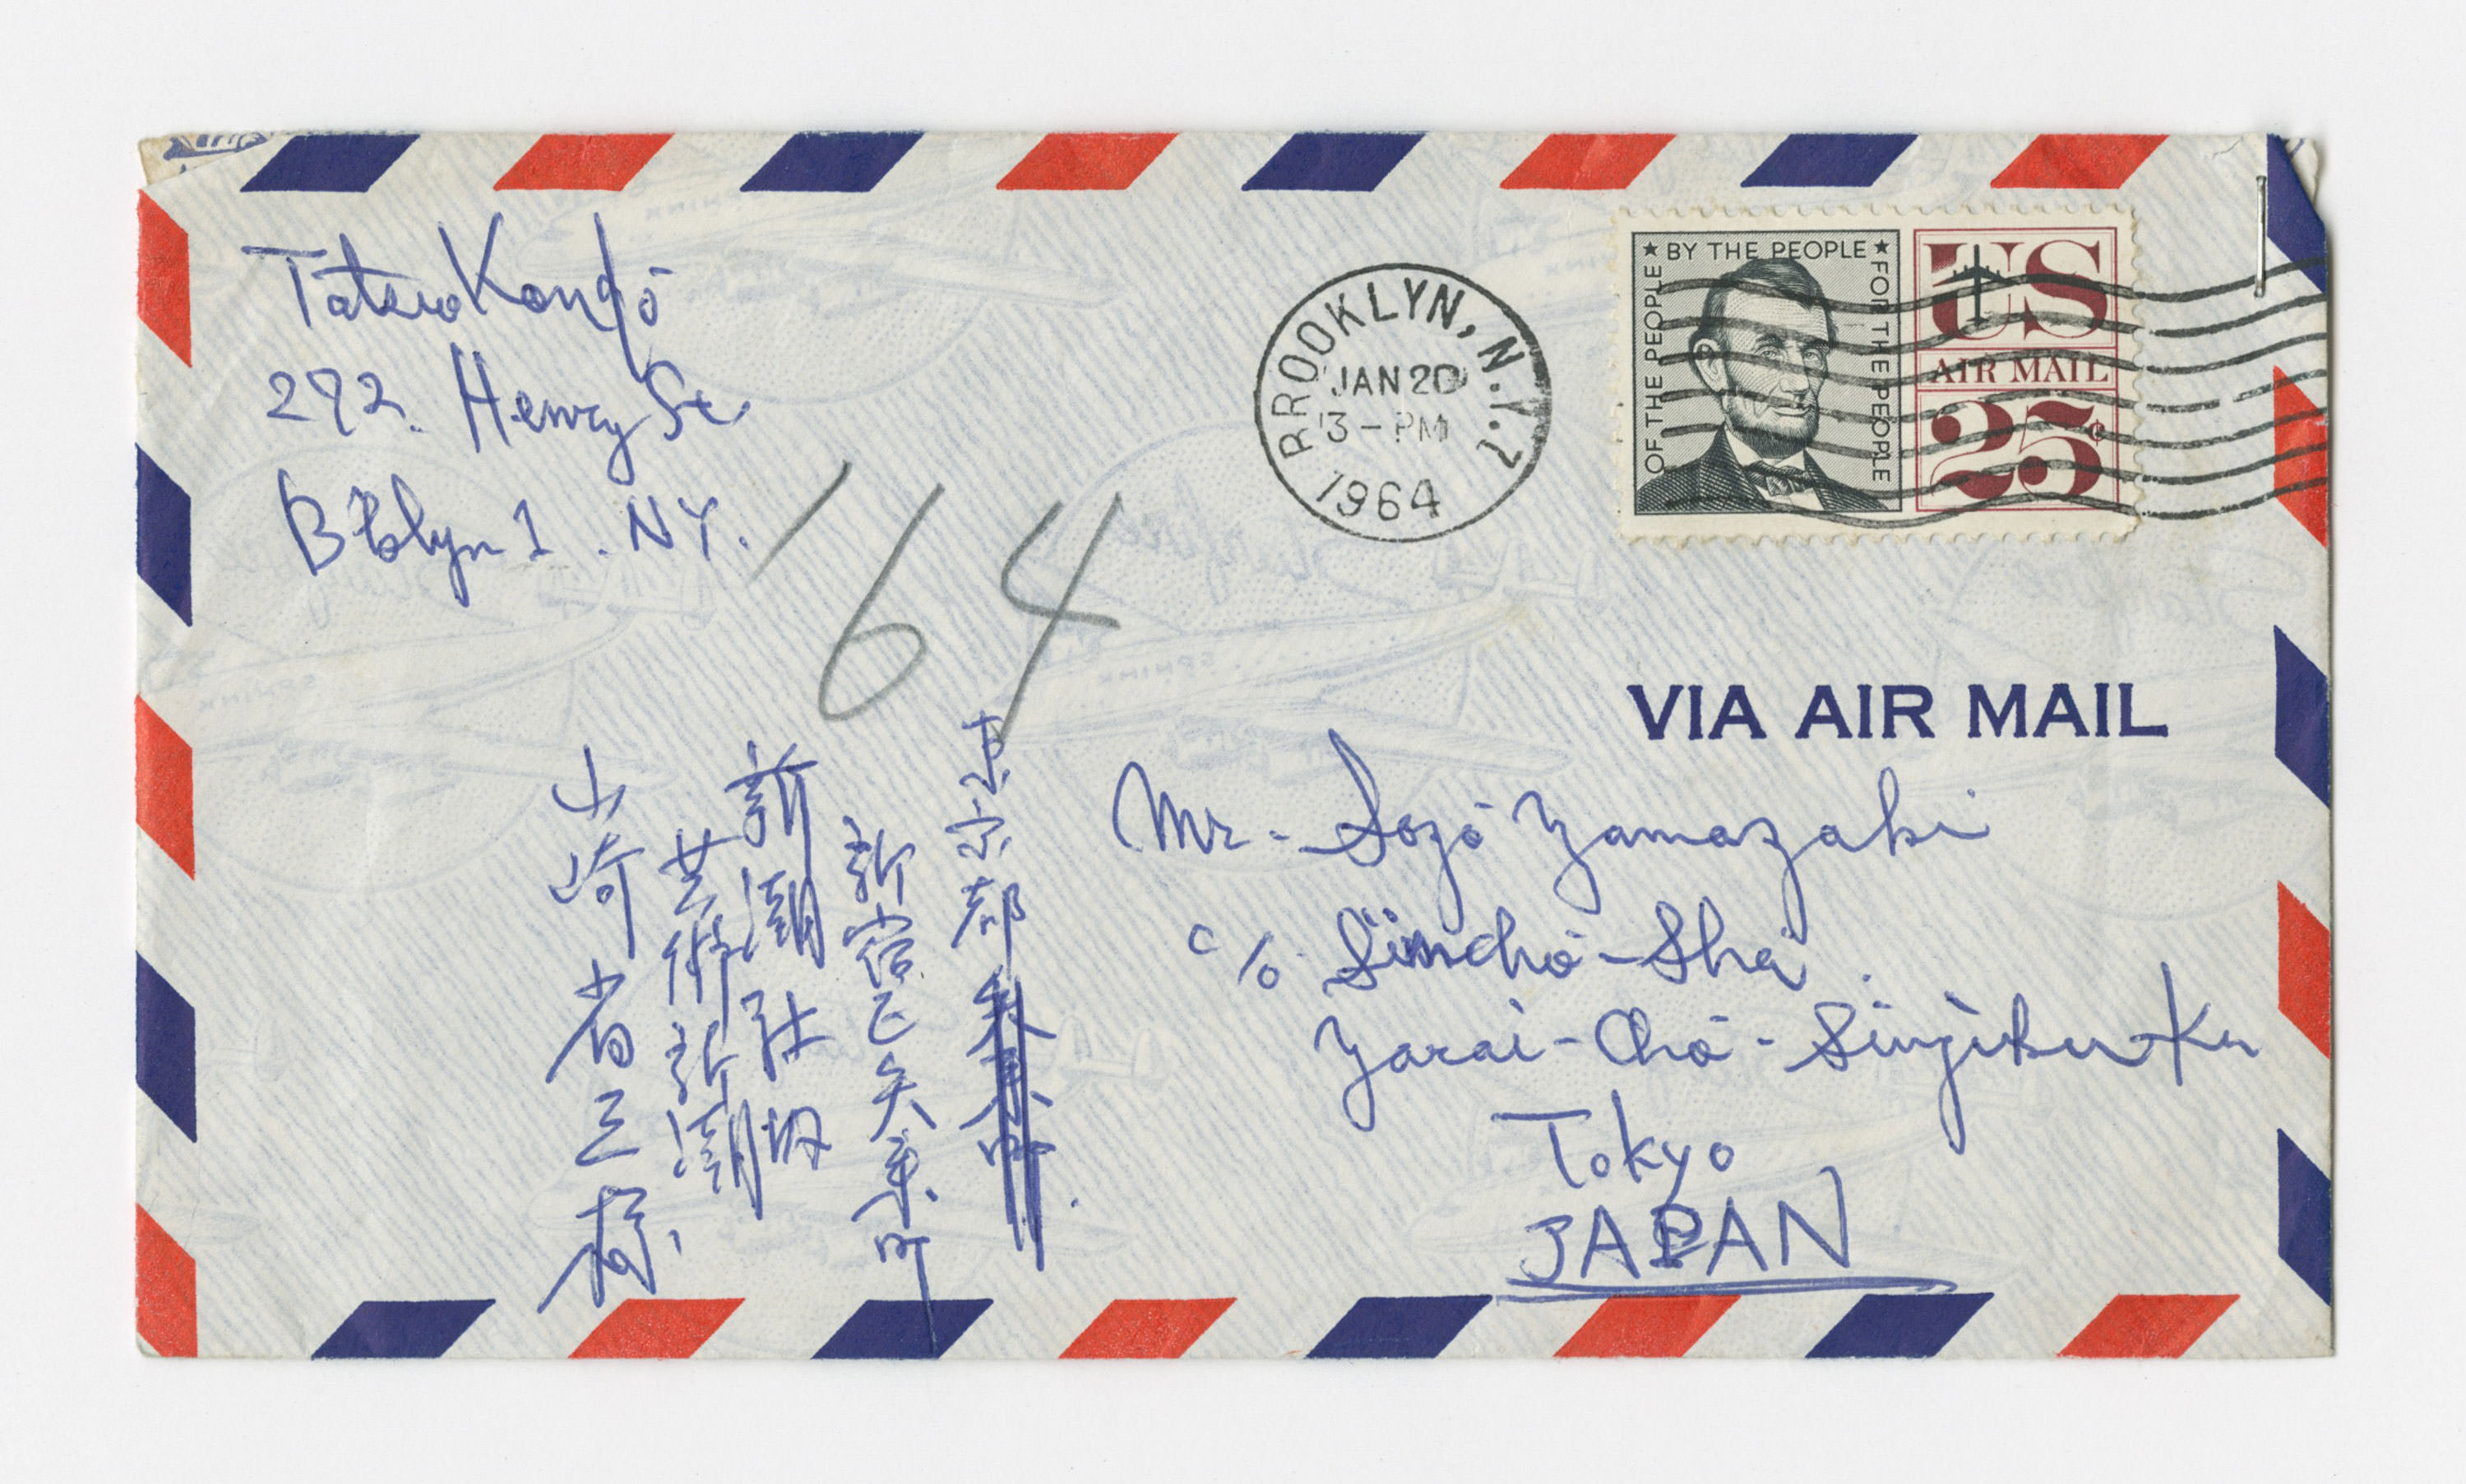 Tatsuo Kondō
292. Henry St.
Bklyn 1. N.Y.
'64
BROOKLYN, N.Y. 7
JAN 20
3 - PM
1964
OF THE PEOPLE ★ BY THE PEOPLE ★ FOR THE PEOPLE
US
AIR MAIL
25¢
VIA AIR MAIL
Mr. Sozō Yamazaki
c/o. Sinchō-Sha.
Yarai-Chō-Sinjiku-Ku
Tokyo
JAPAN
東京都
新宿区矢来町
新潮社内
芸術新潮
山崎省三様
SPHINX
SPHINX